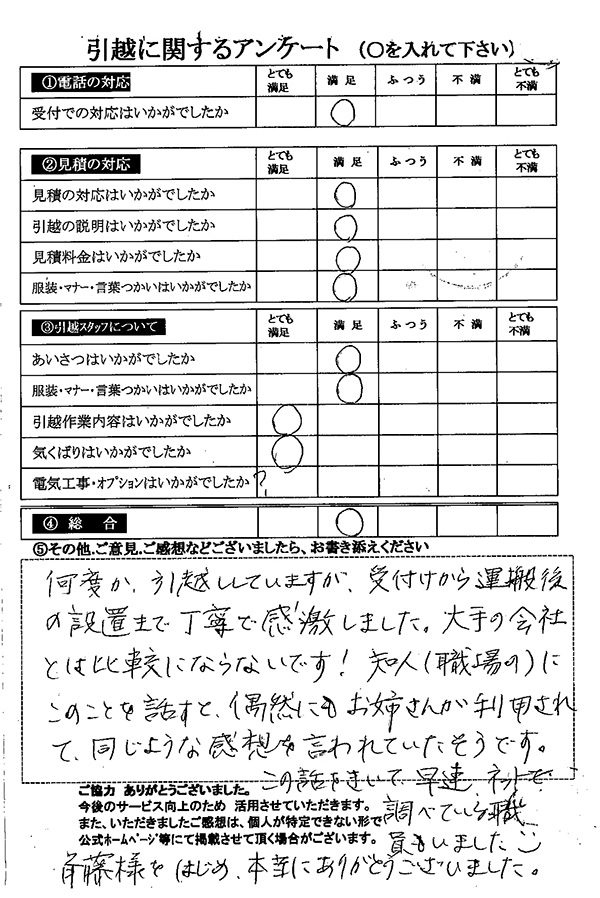 引越に関するアンケート（○を入れて下さい）
①電話の対応 とても満足 満足 ふつう 不満 とても不満
受付での対応はいかがでしたか
②見積の対応 とても満足 満足 ふつう 不満 とても不満
見積の対応はいかがでしたか
引越の説明はいかがでしたか
見積料金はいかがでしたか
服装・マナー・言葉つかいはいかがでしたか
③引越スタッフについて とても満足 満足 ふつう 不満 とても不満
あいさつはいかがでしたか
服装・マナー・言葉つかいはいかがでしたか
引越作業内容はいかがでしたか
気くばりはいかがでしたか
電気工事・オプションはいかがでしたか ?
④ 総 合
⑤その他.ご意見.ご感想などございましたら、お書き添えください
何度か、引越ししていますが、受付けから運搬後
の設置まで丁寧で感激しました。大手の会社
とは比較にならないです！知人（職場の）に
このことを話すと、偶然にもお姉さんが利用され
て、同じような感想を言われていたそうです。
この話をきいて早速、ネットで
調べている職
員もいました
斉藤様をはじめ、本当にありがとうございました。
ご協力 ありがとうございました。
今後のサービス向上のため 活用させていただきます。
また、いただきましたご感想は、個人が特定できない形で
公式ホームページ等にて掲載させて頂く場合がございます。